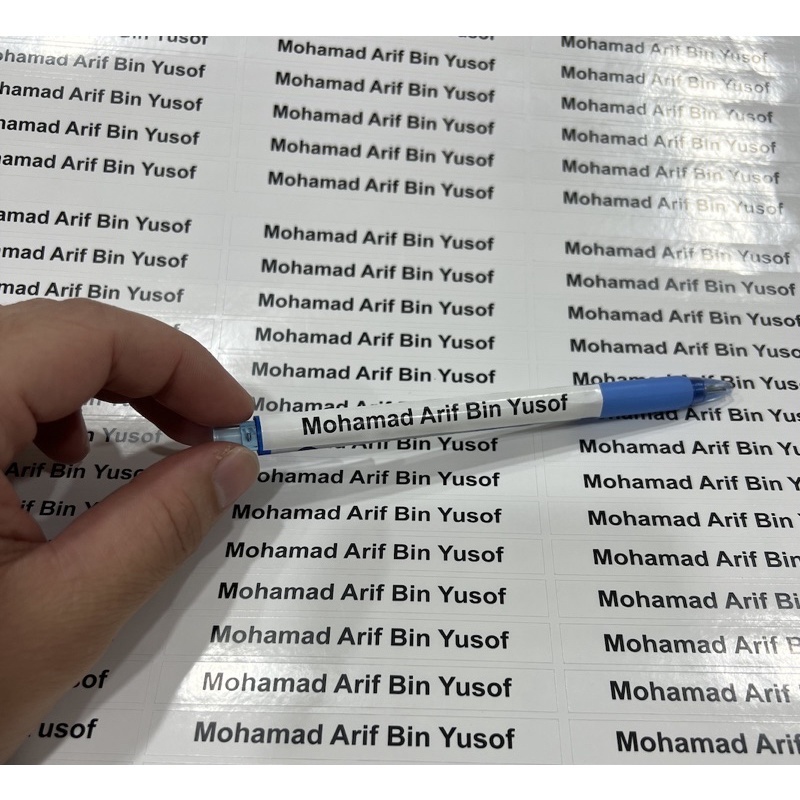 Arif Bin Yusof
Mohamad Arif Bin Yusof
Mohamad Arif Bin Yusof
Arif Bin Yusof
Mohamad Arif Bin Yusof
Mohamad Arif Bin Yusof
Arif Bin Yusof
Mohamad Arif Bin Yusof
Mohamad Arif Bin Yusof
Arif Bin Yusof
Mohamad Arif Bin Yusof
Mohamad Arif Bin Yusof
Mohamad Arif Bin Yusof
Mohamad Arif Bin Yusof
Mohamad Arif Bin Yusof
Arif Bin Yusof
Mohamad Arif Bin Yusof
Mohamad Arif Bin Yusof
Arif Bin Yusof
Mohamad Arif Bin Yusof
Mohamad Arif Bin Yusof
Arif Bin Yusof
Mohamad Arif Bin Yusof
Mohamad Arif Bin Yusof
Mohamad Arif Bin Yusof
Mohamad Arif Bin
Mohamad Arif Bin Yusof
Bin
Mohamad Arif Bin Yusof
Bin Yusof
Yusof
Bin Yusof
Mohamad Arif Bin
Arif Bin
Arif Bin Yusof
Mohamad Arif Bin
Mohamad Arif Bin Yusof
Mohamad Arif Bin
Mohamad Arif Bin Yusof
Mohamad Arif Bin
Mohamad Arif Bin Yusof
Mohamad Arif
Mohamad Arif Bin Yusof
Mohamad Arif
Mohamad Arif Bin Yusof
Mohamad Arif
Mohamad Arif Bin Yusof
Mohamad Arif